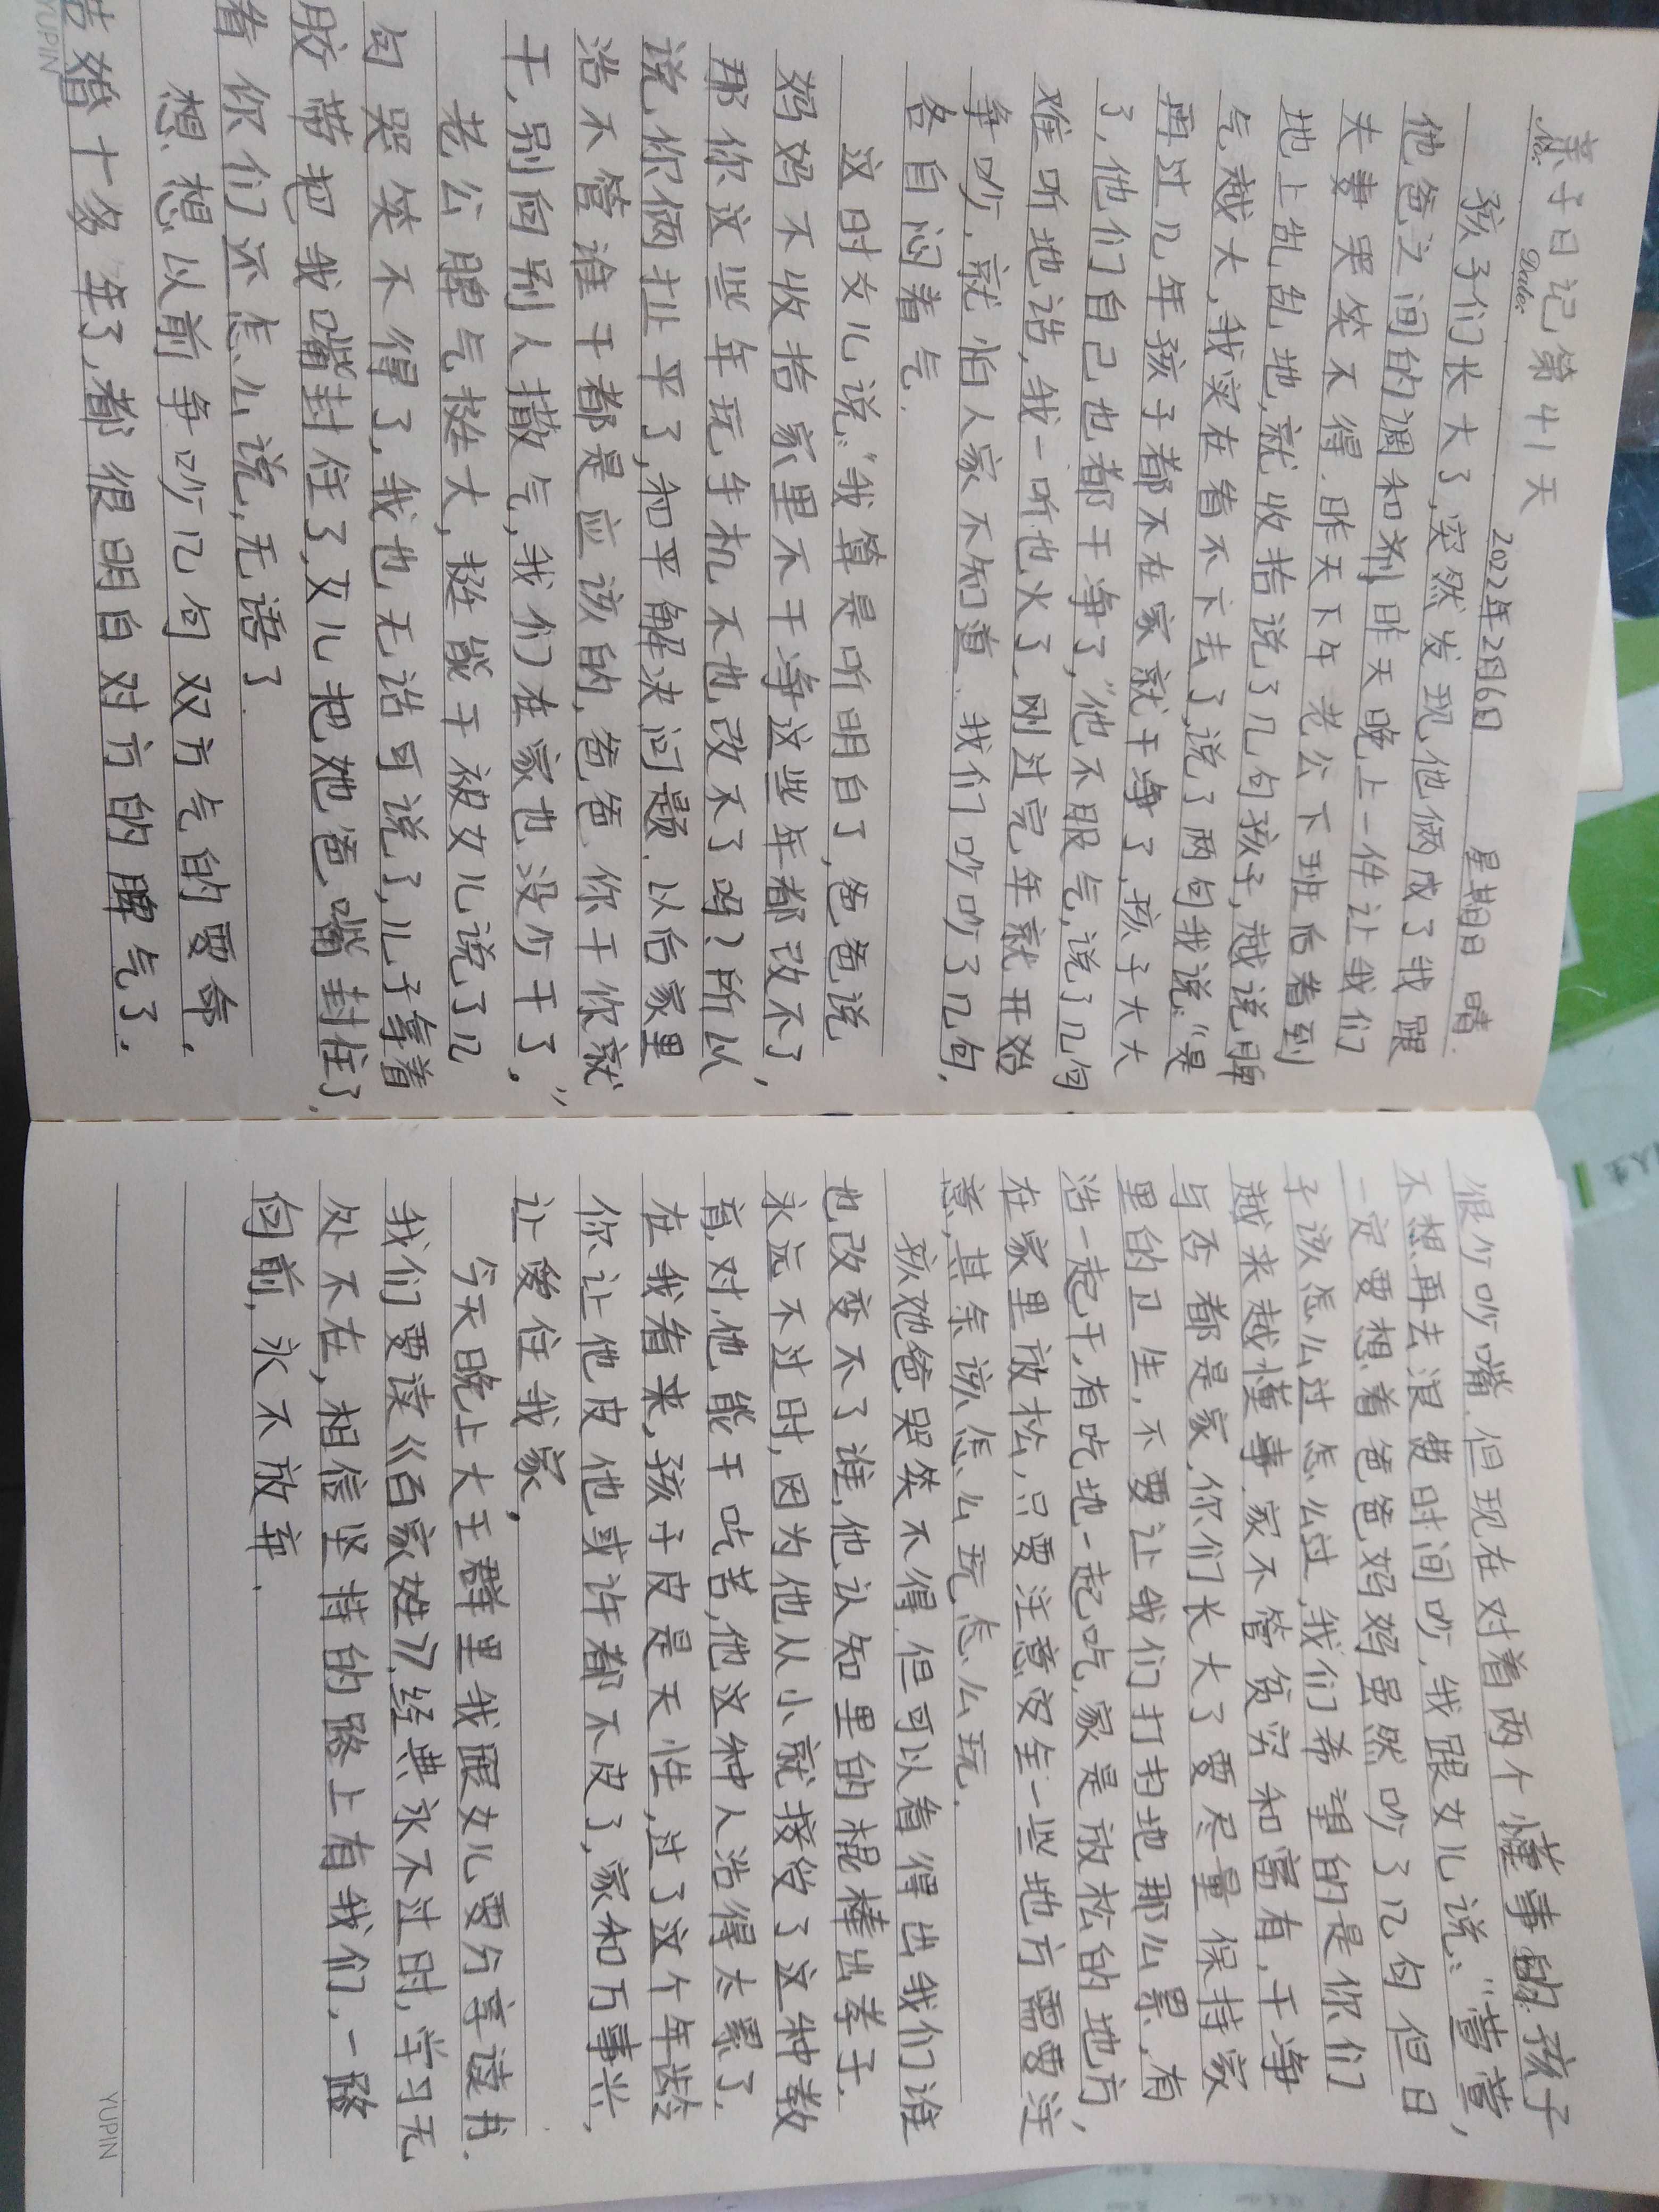 亲子日记第41天
No:
Date:
2022年2月6日 星期日 晴
孩子们长大了,突然发现他俩成了我跟
他爸之间的调和剂.昨天晚上一件让我们
夫妻哭笑不得.昨天下午老公下班后看到
地上乱乱地,就收拾说了几句孩子,越说脾
气越大,我实在看不下去了,说了两句我说:"是
再过几年孩子都不在家就干净了,孩子大大
了,他们自己也都干净了,"他不服气,说了几句
难听地话,我一听也火了.刚过完年就开始
争吵,就怕人家不知道.我们吵吵了几句,
各自闷着气.
这时女儿说:"我算是听明白了,爸爸说
妈妈不收拾家里不干净这些年都改不了,
那你这些年玩手机不也改不了吗?所以
说,你俩扯平了,和平解决问题.以后家里
活不管谁干都是应该的,爸爸.你干你就
干,别向别人撒气,我们在家也没少干了."
老公脾气挺大,挺能干被女儿说了几
句哭笑不得了,我也无话可说了,儿子拿着
胶带把我嘴封住了,女儿把她爸嘴封住了,
看你们还怎么说,无语了.
想想以前争吵几句双方气的要命.
结婚十多年了,都很明白对方的脾气了.
YUPIN
很少吵嘴.但现在对着两个懂事的孩子
不想再去浪费时间吵,我跟女儿说:"萱萱,
一定要想着爸爸妈妈虽然吵了几句但日
子该怎么过怎么过,我们希望的是你们
越来越懂事.家不管贫穷和富有,干净
与否都是家,你们长大了要尽量保持家
里的卫生,不要让我们打扫地那么累,有
活一起干,有吃地一起吃.家是放松的地方,
在家里放松,只要注意安全一些地方需要注
意,其余该怎么玩怎么玩.
孩她爸哭笑不得.但可以看得出我们谁
也改变不了谁,他认知里的棍棒出孝子.
永远不过时,因为他从小就接受了这种教
育,对,他能干吃苦,他这种人活得太累了.
在我看来,孩子皮是天性,过了这个年龄
你让他皮他或许都不皮了,家和万事兴,
让爱住我家.
今天晚上大王群里我跟女儿要分享读书.
我们要读《百家姓》,经典永不过时,学习无
处不在,相信坚持的路上有我们,一路
向前,永不放弃.
YUPIN